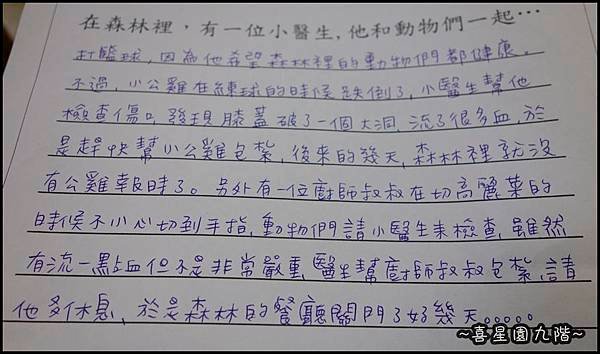 在森林裡，有一位小醫生，他和動物們一起…
打籃球，因為他希望森林裡的動物們都健康。
不過，小公雞在練球的時候跌倒了，小醫生幫他
檢查傷口，發現膝蓋破了一個大洞，流了很多血，於
是趕快幫小公雞包紮，後來的幾天，森林裡就沒
有公雞報時了。另外有一位廚師叔叔在切高麗菜的
時候不小心切到手指，動物們請小醫生來檢查，雖然
有流一點血但不是非常嚴重，醫生幫廚師叔叔包紮，請
他多休息，於是森林的餐廳關門了好幾天。。。。。
~喜星園九階~